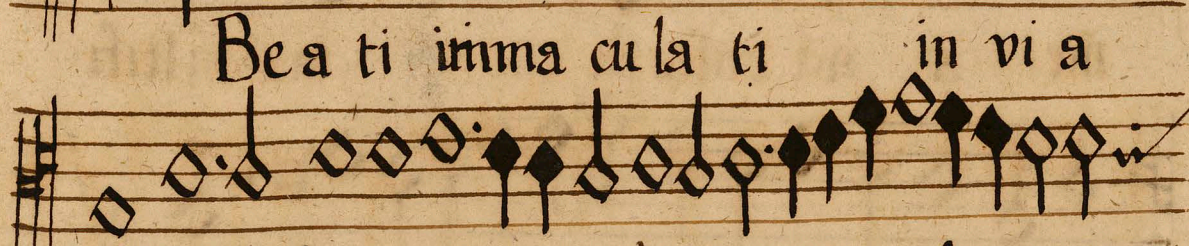 Be a ti imma cu la ti in vi a
ij